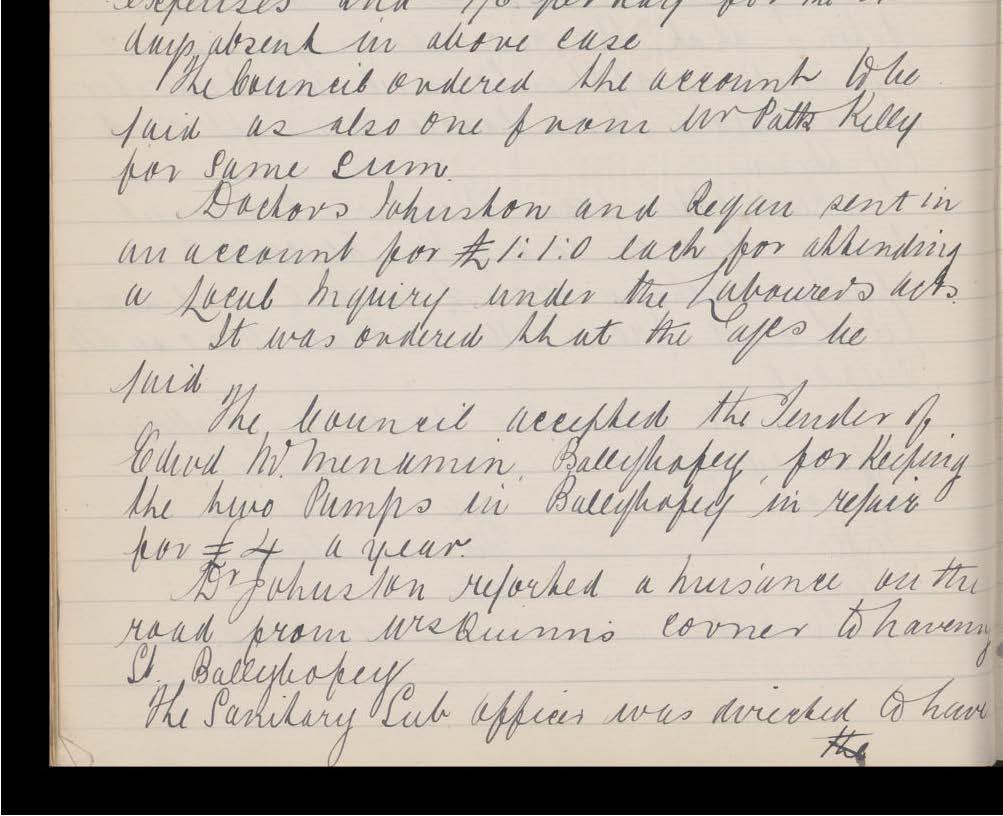 expenses and 7/6 per day for the
days absent in above case
The Council ordered the account to be
paid as also one from Mr Patk Kelly
for same sum.
Doctors Johnston and Regan sent in
an account for £1:1:0 each for attending
a Local Inquiry under the Labourers acts.
It was ordered that the Cafes be
paid
The Council accepted the Tender of
Edwd McMenamin, Ballybofey, for Keeping
the two Pumps in Ballybofey in repair
for £4 a year.
Dr Johnston reported a nuisance on the
road from Mrs Quinns corner to
St. Ballybofey
The Sanitary Sub officer was directed to have
the